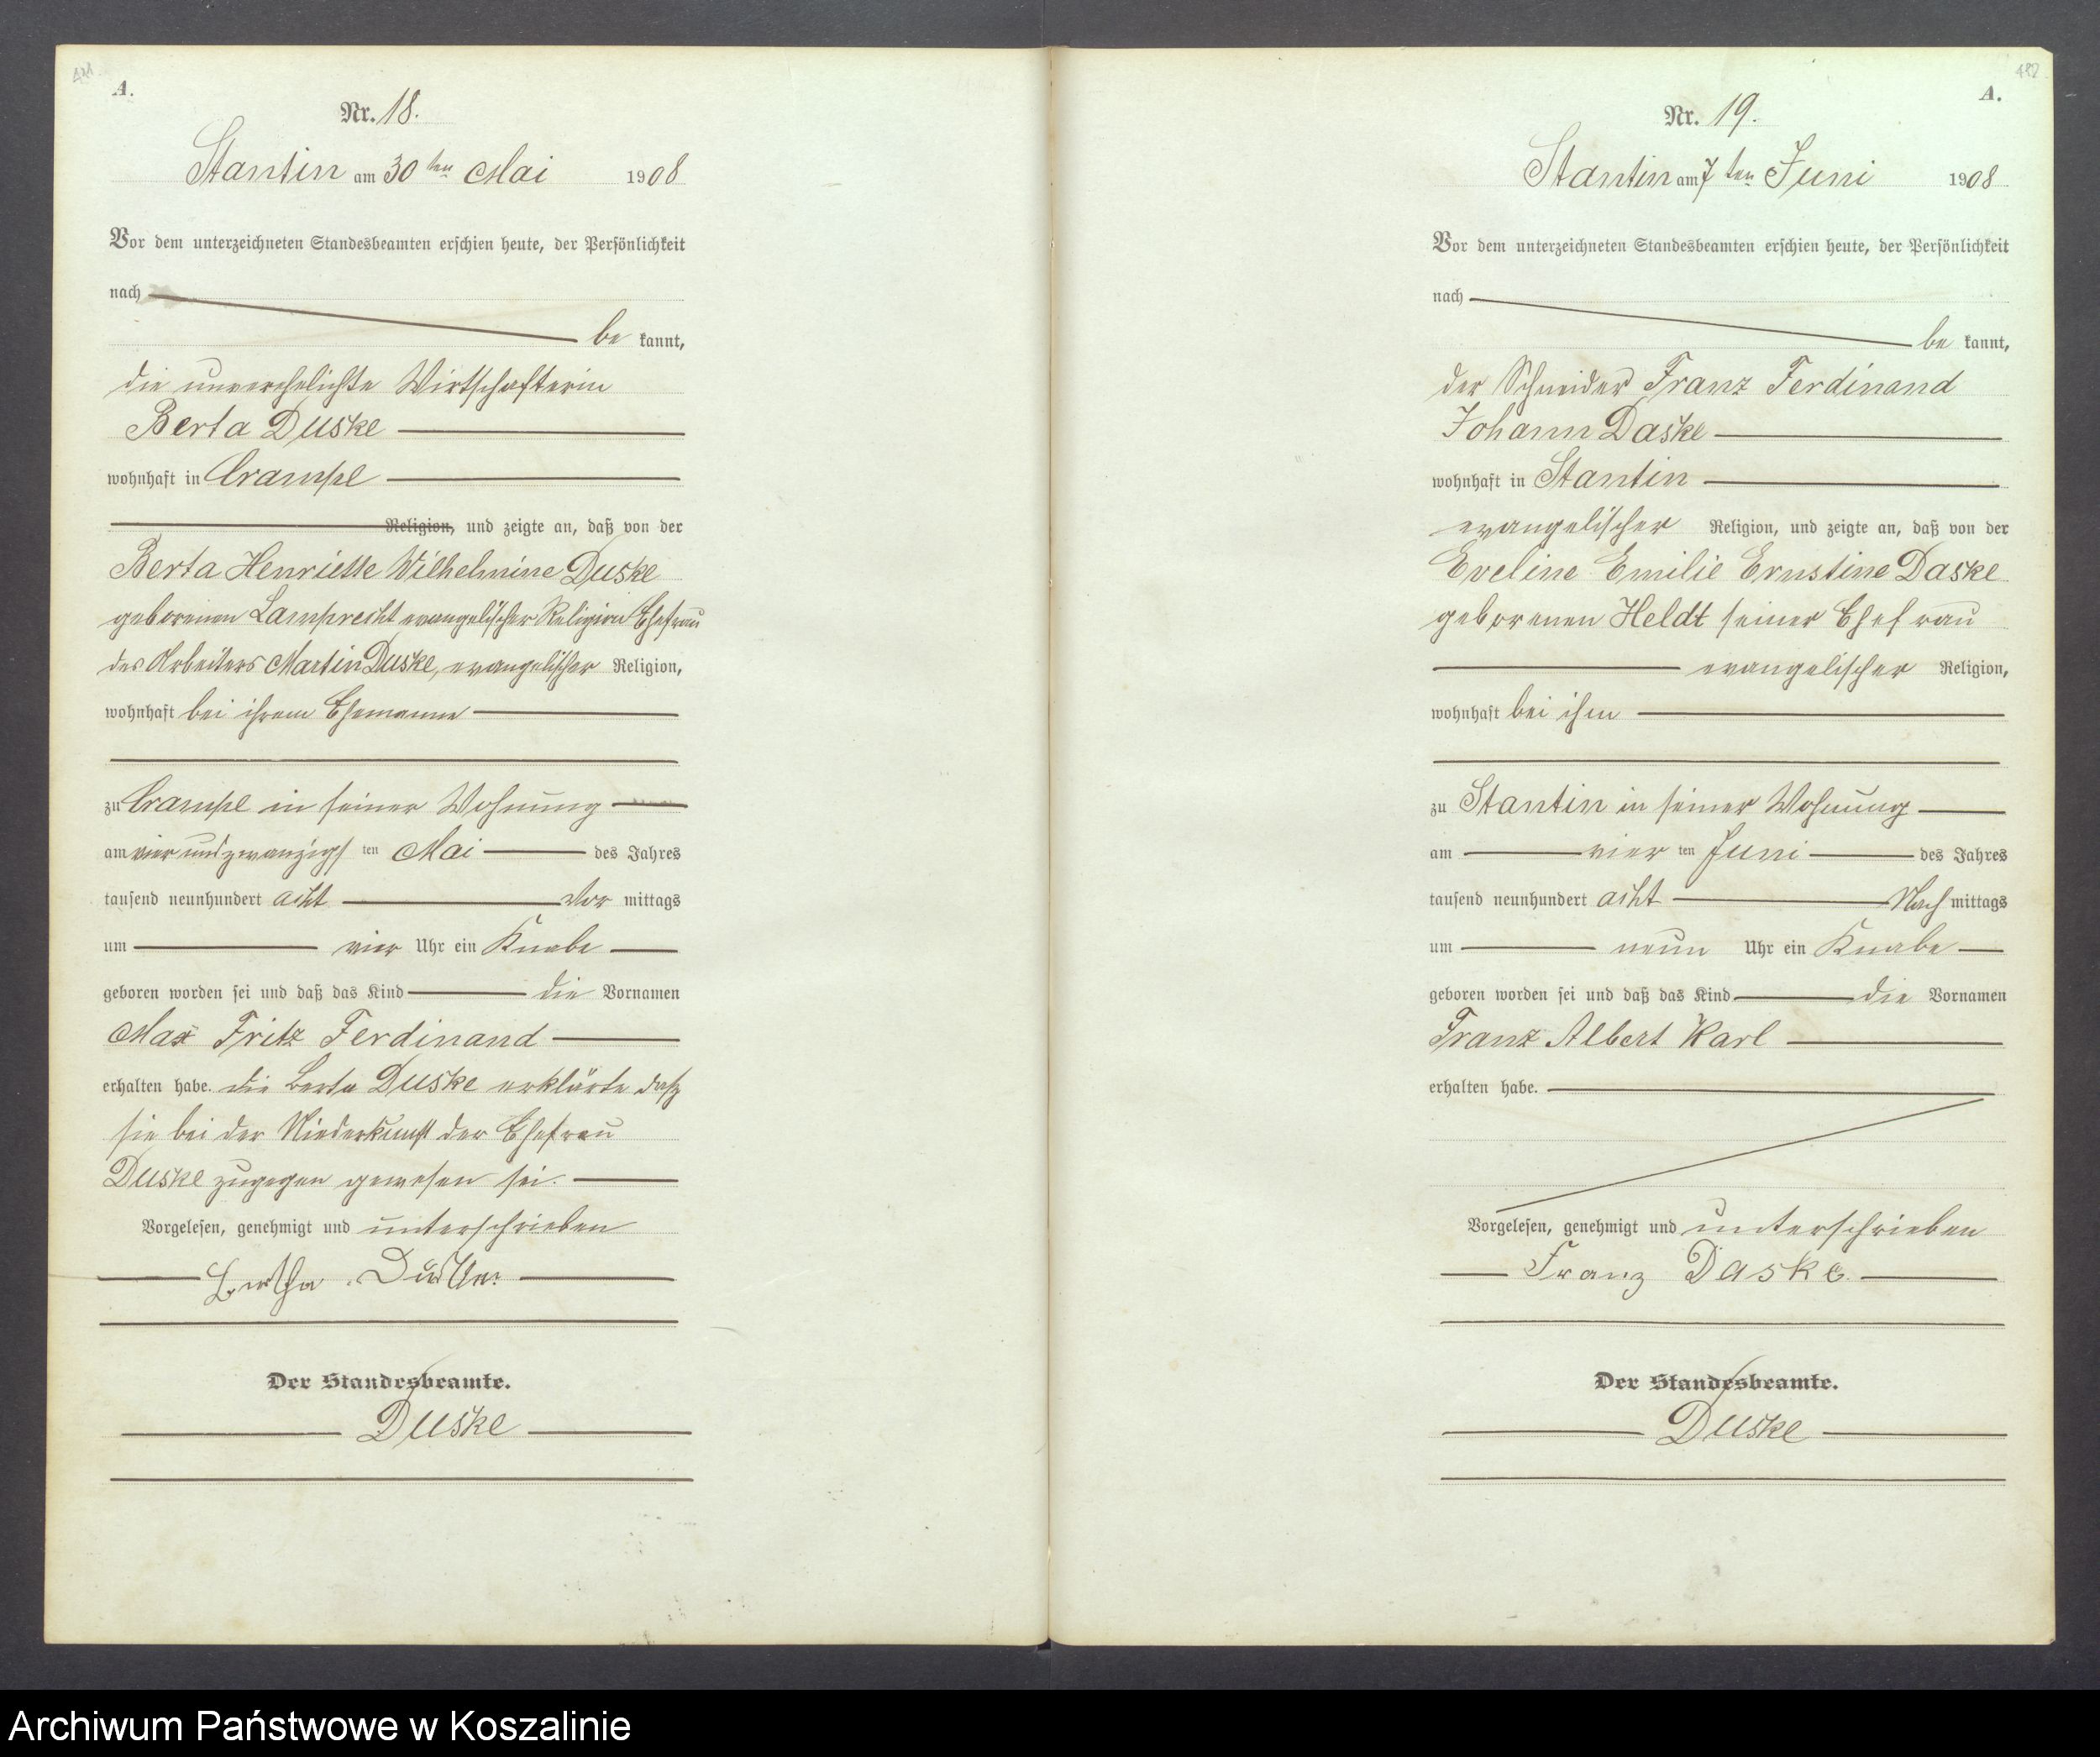 A.
Nr. 18.
Stantin am 30ten Mai 1908
Vor dem unterzeichneten Standesbeamten erschien heute, der Persönlichkeit
nach
be kannt,
die unverehelichte Wirtschafterin
Berta Duske
wohnhaft in Crampe
Religion, und zeigte an, daß von der
Berta Henriette Wilhelmine Duske
geborenen Lamprecht evangelischer Religion Ehefrau
des Arbeiters Martin Duske, evangelischer Religion,
wohnhaft bei ihrem Ehemanne
zu Crampe in seiner Wohnung
am vier und zwanzigs ten Mai des Jahres
tausend neunhundert acht Vor mittags
um vier Uhr ein Knabe
geboren worden sei und daß das Kind die Vornamen
Max Fritz Ferdinand
erhalten habe. die Berta Duske erklärte daß
sie bei der Niederkunft der Ehefrau
Duske zugegen gewesen sei.
Vorgelesen, genehmigt und unterschrieben
Bertha Duske.
Der Standesbeamte.
Duske
482
A.
Nr. 19.
Stantin am 7ten Juni 1908
Vor dem unterzeichneten Standesbeamten erschien heute, der Persönlichkeit
nach
be kannt,
der Schneider Franz Ferdinand
Johann Daske
wohnhaft in Stantin
evangelischer Religion, und zeigte an, daß von der
Eveline Emilie Ernstine Daske
geborenen Heldt seiner Ehefrau
evangelischer Religion,
wohnhaft bei ihm
zu Stantin in seiner Wohnung
am vier ten Juni des Jahres
tausend neunhundert acht Nach mittags
um neun Uhr ein Knabe
geboren worden sei und daß das Kind die Vornamen
Franz Albert Karl
erhalten habe.
Vorgelesen, genehmigt und unterschrieben
Franz Daske.
Der Standesbeamte.
Duske
Archiwum Państwowe w Koszalinie